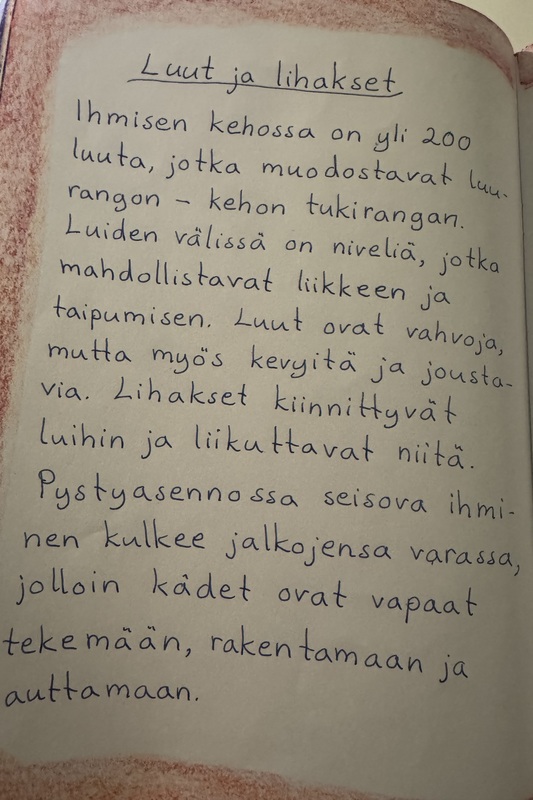 Luut ja lihakset
Ihmisen kehossa on yli 200
luuta, jotka muodostavat luu-
rangon – kehon tukirangan.
Luiden välissä on niveliä, jotka
mahdollistavat liikkeen ja
taipumisen. Luut ovat vahvoja,
mutta myös kevyitä ja jousta-
via. Lihakset kiinnittyvät
luihin ja liikuttavat niitä.
Pystyasennossa seisova ihmi-
nen kulkee jalkojensa varassa,
jolloin kädet ovat vapaat
tekemään, rakentamaan ja
auttamaan.